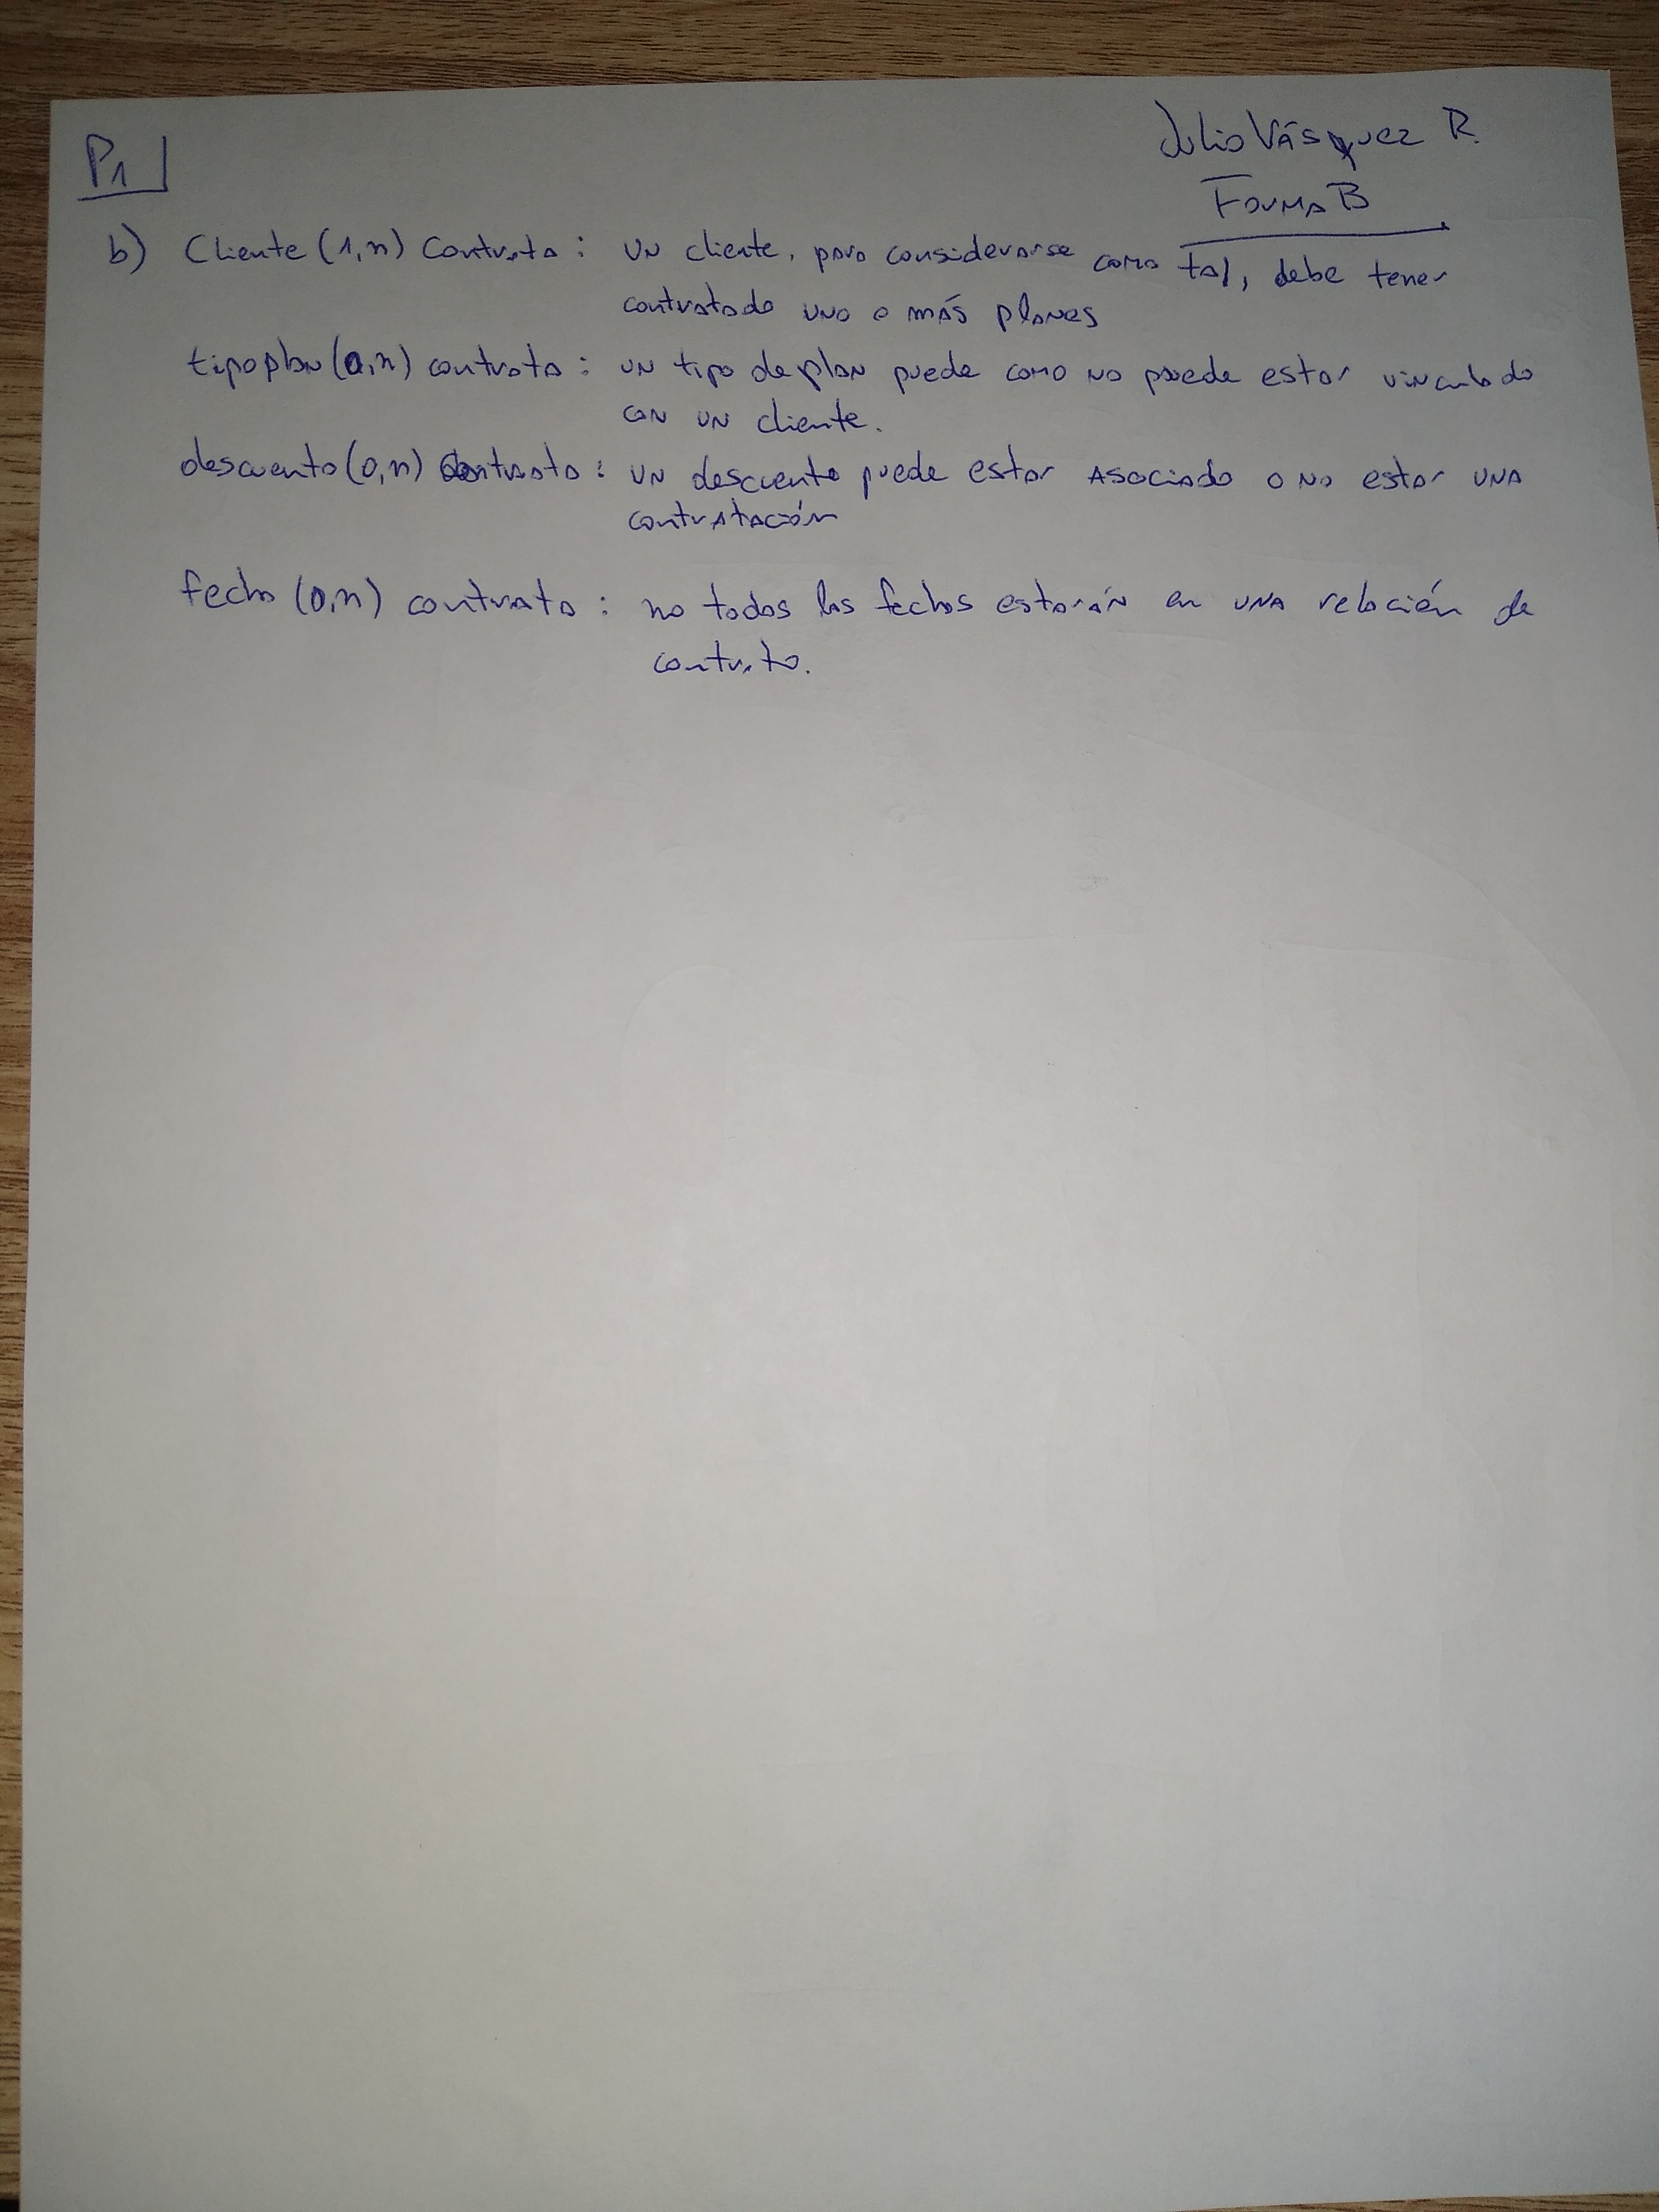 P1
Julio Vásquez R.
Forma B
b) Cliente (1,n) Contrata : un cliente, para considerarse como tal, debe tener
contratado uno o más planes
tipoplan (0,n) contrata : un tipo de plan puede como no puede estar vinculado
con un cliente.
descuento (0,n) contrata : un descuento puede estar asociado o no estar una
contratación
fecha (0,n) contrata : no todas las fechas estarán en una relación de
contrato.